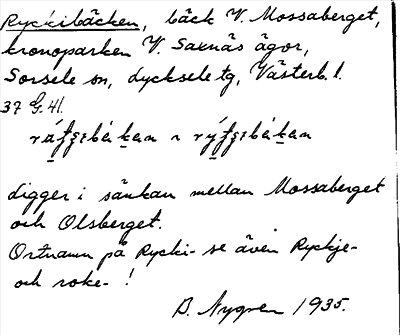 Ryckibäcken, bäck V. Mossaberget,
kronoparken V. Saxnäs ägor,
Sorsele sn, Lycksele tg, Västerb. l.
37 G. 41.
digger i sänkan mellan Mossaberget
och Olsberget.
Ortnamn på Rycki- se även Ryckje-
och roke- !
B. Nygren 1935.